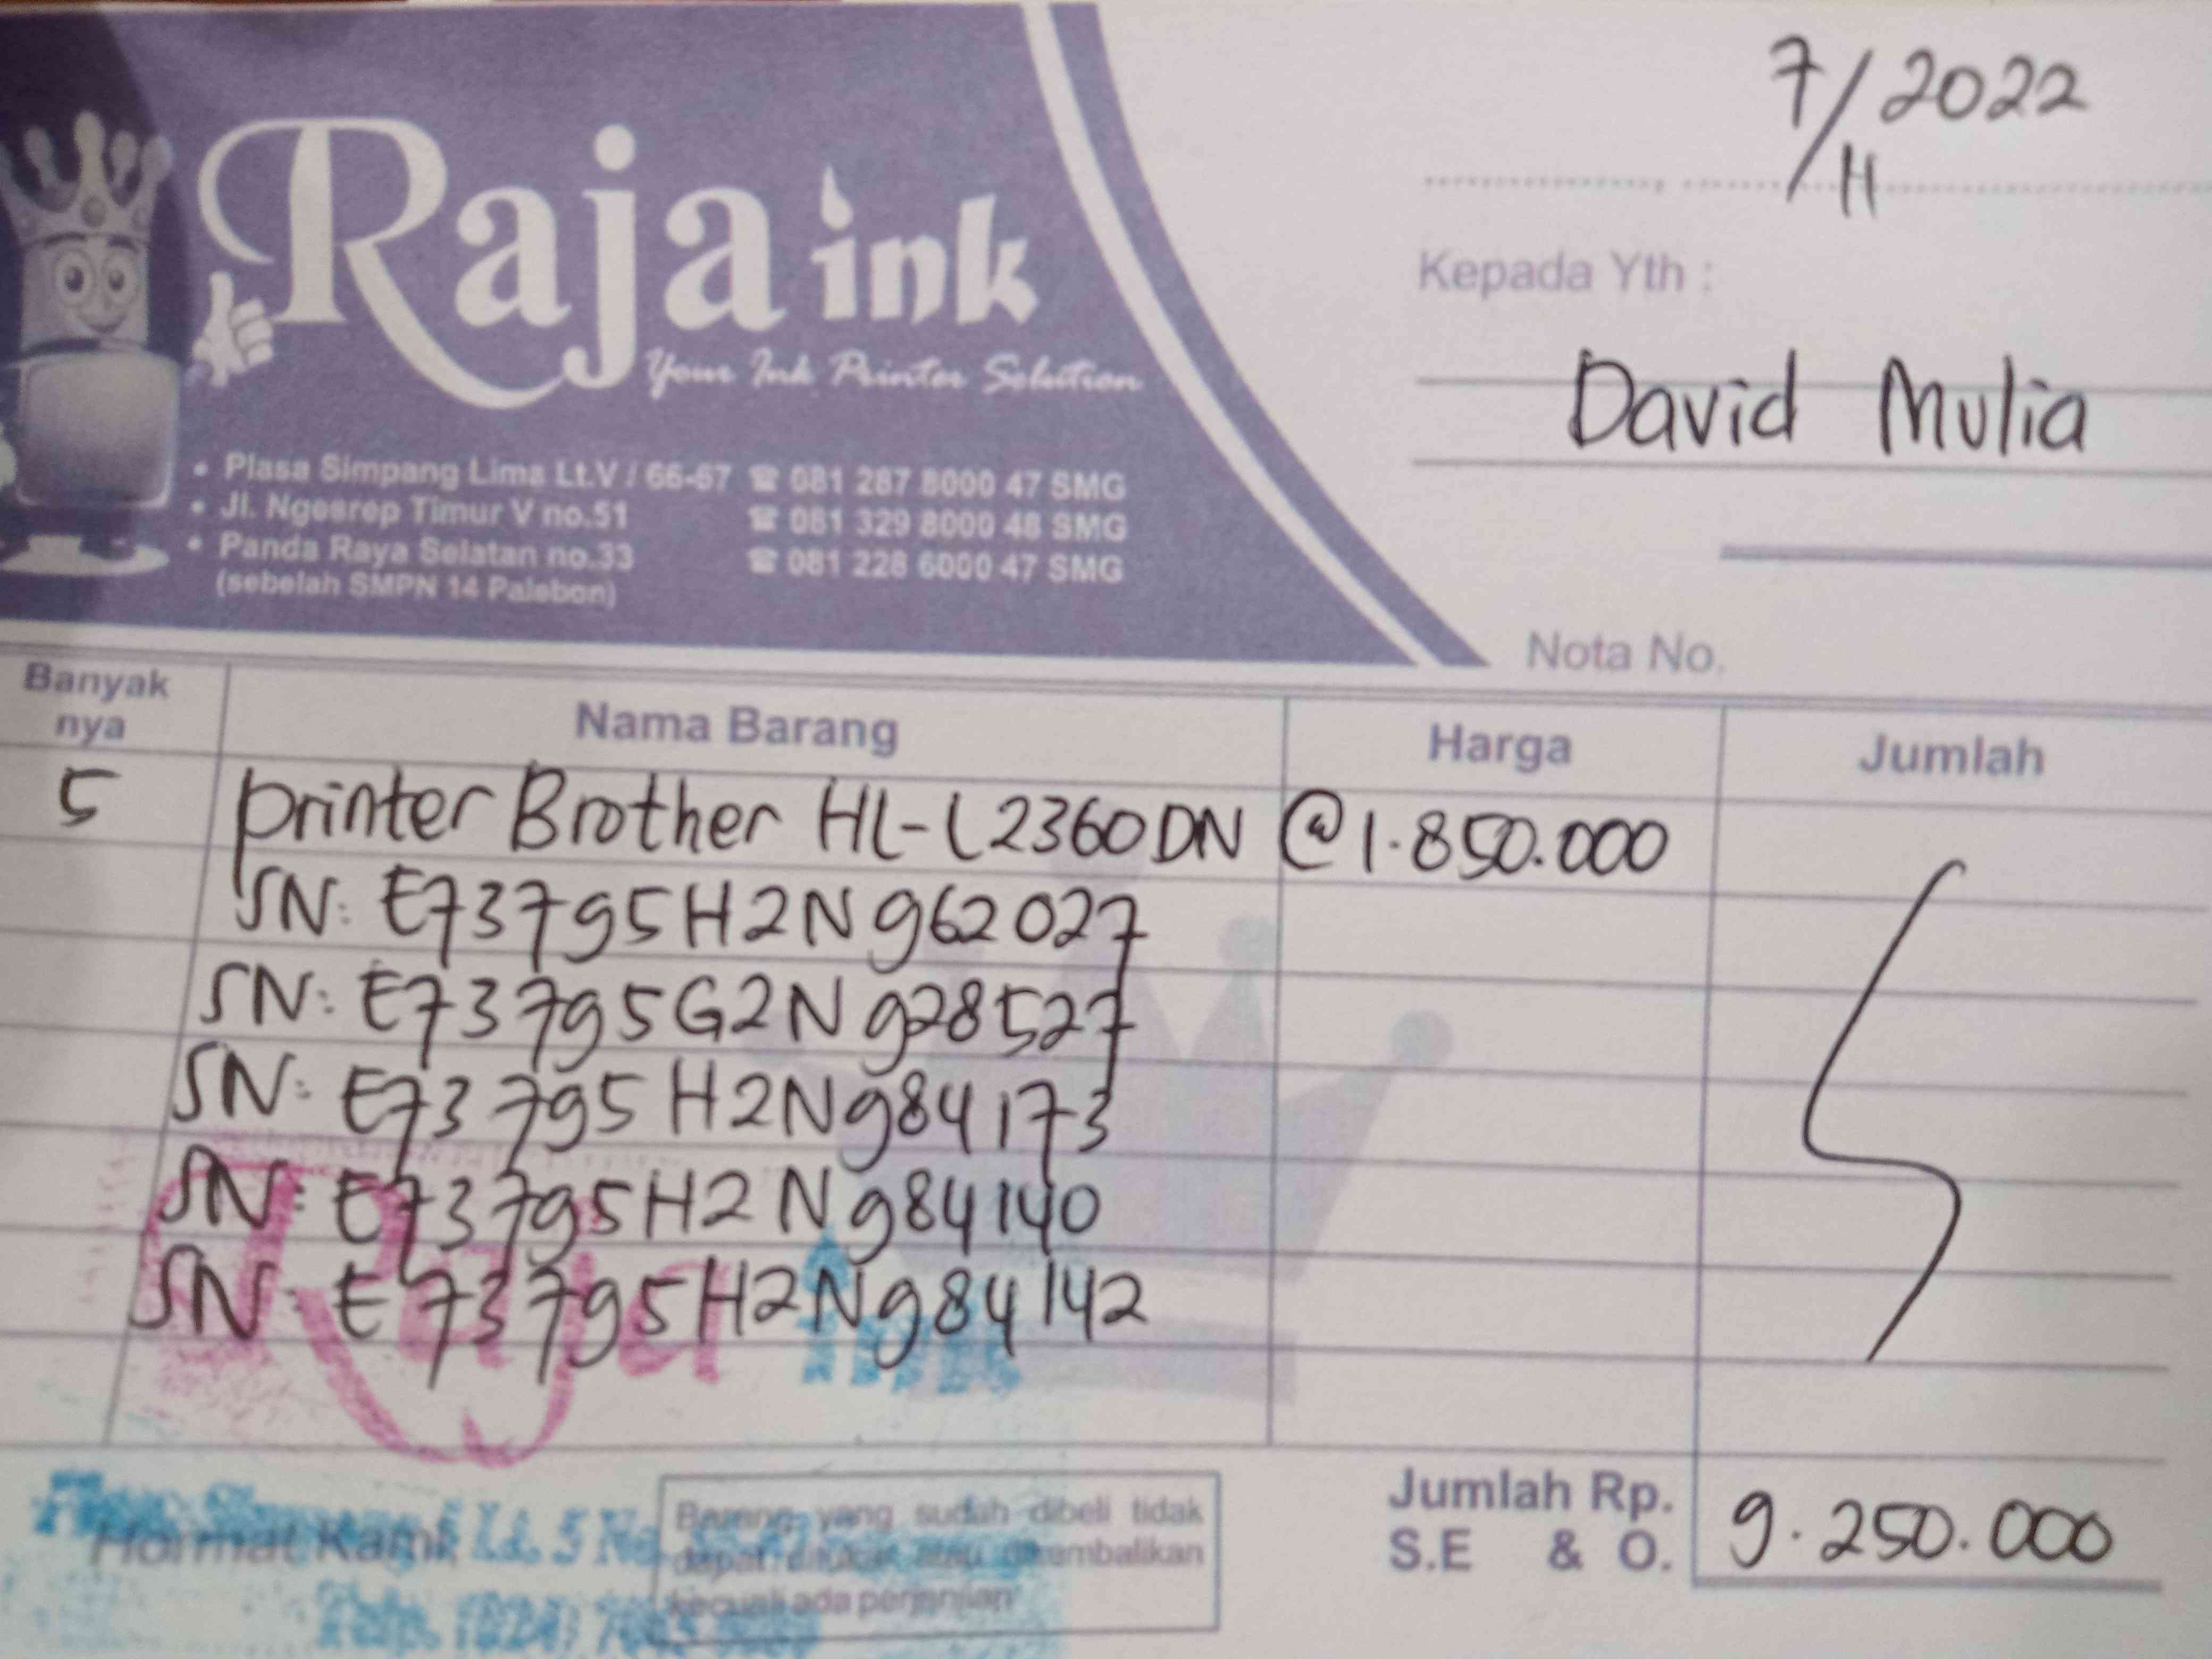 Raja ink
Your Ink Printer Solution
• Plasa Simpang Lima Lt.V / 66-67 ☎ 081 287 8000 47 SMG
• Jl. Ngesrep Timur V no.51 ☎ 081 329 8000 48 SMG
• Panda Raya Selatan no.33 ☎ 081 228 6000 47 SMG
(sebelah SMPN 14 Palebon)
7/11 2022
Kepada Yth :
David Mulia
Nota No.
Banyak nya Nama Barang Harga Jumlah
5 printer Brother HL-L2360DN @1.850.000
SN: E73795H2N962027
SN: E73795G2N928527
SN: E73795H2N984173
SN: E73795H2N984140
SN: E73795H2N984142
Raja ink
Lt. 5 No.
Telp. (024)
Hormat Kami,
Barang yang sudah dibeli tidak
dapat ditukar atau dikembalikan
kecuali ada perjanjian
Jumlah Rp. 9.250.000
S.E & O.